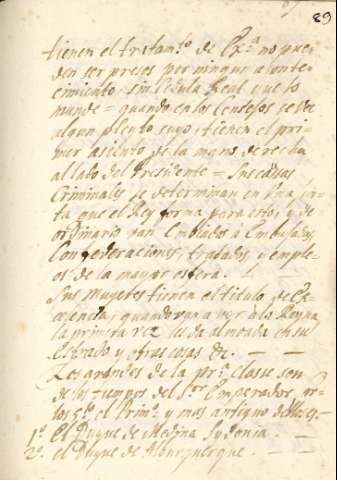 89
tienen el tratam.to de Ex.a no pue-
den ser presos por ningun aconte-
cimiento, sin Cedula Real que lo
mande = quando en los Consejos se ve
algun pleyto suyo, tienen el pri-
mer asiento de la mano derecha
al lado del Presidente = Sus causas
Criminales se determinan en una Jun-
ta que el Rey forma para esto, y de
ordinario van Embiados à Embajadas,
Confederaciones, tratados, y emple-
os de la mayor esfera.
Sus Mugeres tienen el titulo de Ex-
celencia, quando van a ver à la Reyna
la primera vez les da almoada en su
Estrado y otras cosas &c.
Los grandes de la pr.a Classe son
de los tiempos del S.or Emperador
los el Prim.o y mas antiguo
1.º El Duque de Medina Sydonia.
2.º el Duque de Alburquerque.